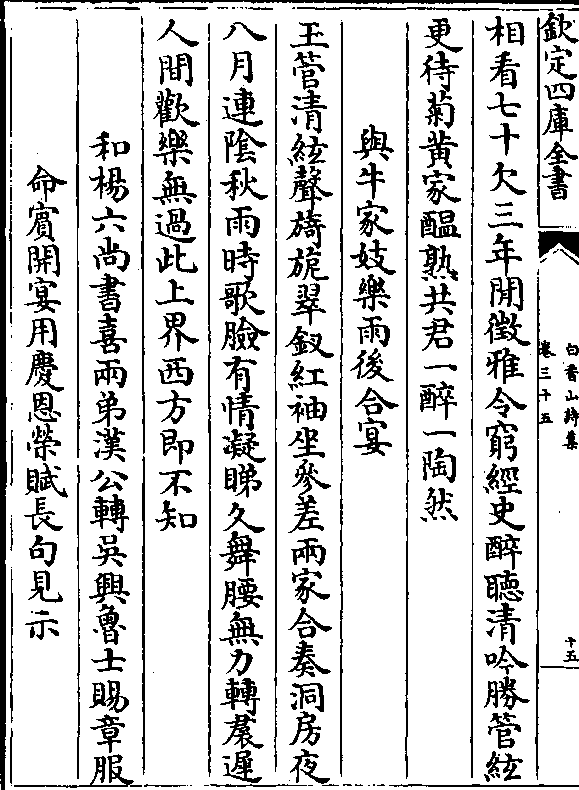 欽定四庫全書
白香山詩集
卷三十五
十五
相看七十欠三年閒徵雅令窮經史醉聽清吟勝管絃
更待菊黃家醞熟共君一醉一陶然
與牛家妓樂雨後合宴
玉管清絃聲旖旎翠釵紅袖坐參差兩家合奏洞房夜
八月連陰秋雨時歌臉有情凝睇久舞腰無力轉裠遲
人間歡樂無過此上界西方即不知
和楊六尚書喜兩弟漢公轉吳興魯士賜章服
命賓開宴用慶恩榮賦長句見示